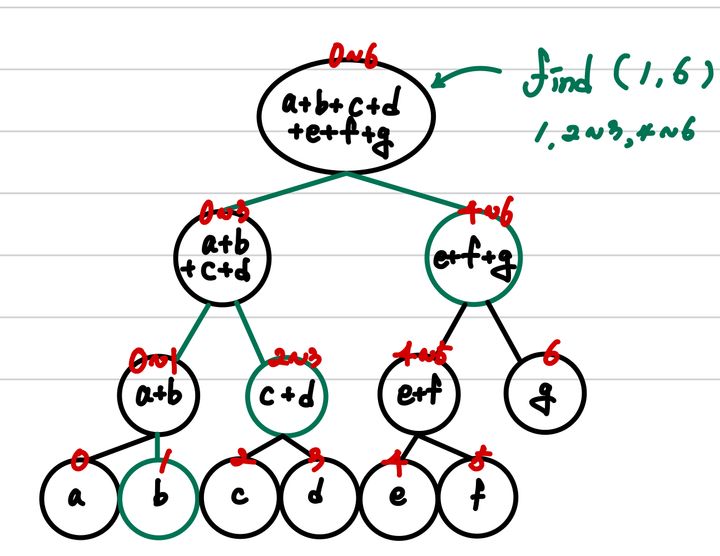 0~6
a+b+c+d
+e+f+g
find (1,6)
1, 2~3, 4~6
0~3
a+b
+c+d
4~6
e+f+g
0~1
a+b
2~3
c+d
4~5
e+f
6
g
0
a
1
b
2
c
3
d
4
e
5
f